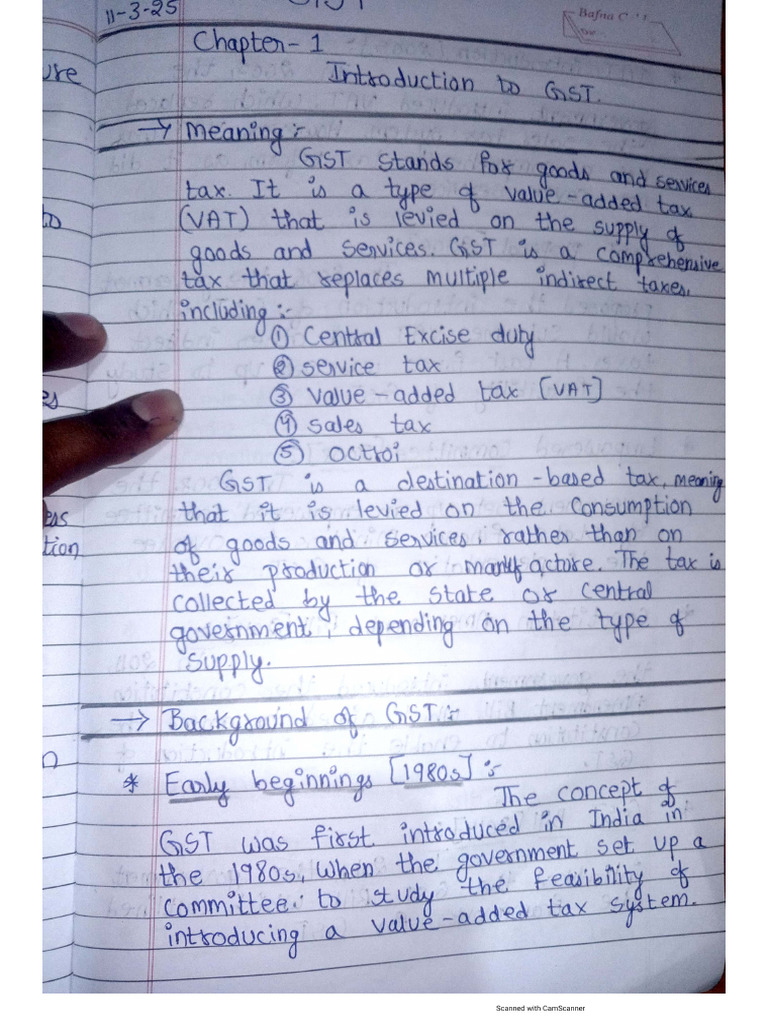 11-3-25
Bafna
Chapter-1
Introduction to GST.
→ Meaning:-
GST stands for goods and services
tax. It is a type of value-added tax
(VAT) that is levied on the supply of
goods and services. GST is a comprehensive
tax that replaces multiple indirect taxes,
including:-
① Central Excise duty
② service tax
③ value-added tax [VAT]
④ sales tax
⑤ octroi
GST is a destination-based tax, meaning
that it is levied on the consumption
of goods and services, rather than on
their production or manufacture. The tax is
collected by the state or central
government, depending on the type of
supply.
→ Background of GST:-
* Early beginnings [1980s]:-
The concept of
GST was first introduced in India in
the 1980s, when the government set up a
committee to study the feasibility of
introducing a value-added tax system.
Scanned with CamScanner